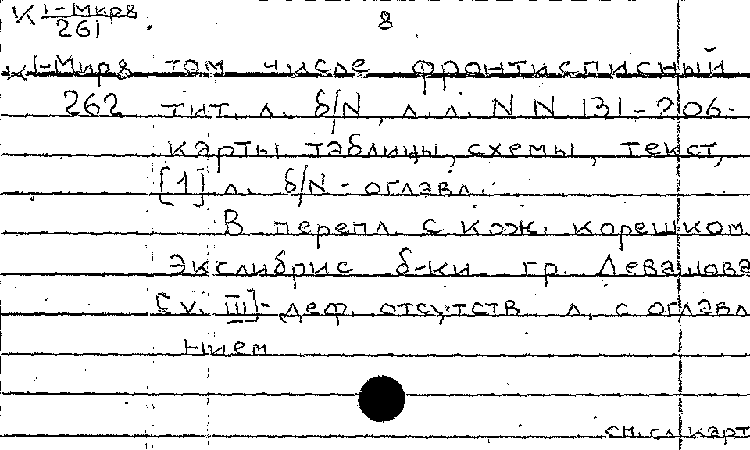 К 1-Мкрв 8
261
К 1-Мкрв том числе фронтисписный
262 тит. л. б/N, л.л. N N 131-206-
карты таблицы, схемы, текст,
[1] л. б/N - оглавл.
В перепл. с кож. корешком
Экслибрис б-ки гр. Левашова
[v. III]- деф. отсутств л. с оглавл
нием
см. сл карт